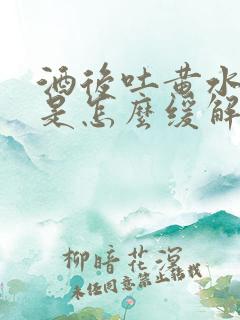 酒後吐黄水
是怎麼缓解
柳暗花溟
未经同意禁止转载